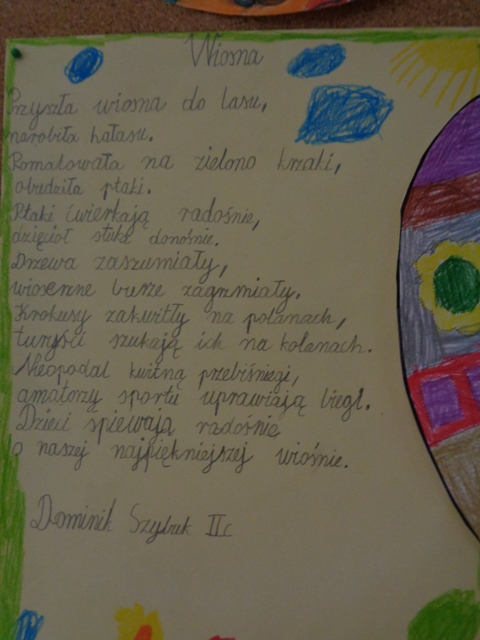 Wiosna
Przyszła wiosna do lasu,
narobiła hałasu.
Pomalowała na zielono krzaki,
obudziła ptaki.
Ptaki ćwierkają radośnie,
dzięcioł stuka donośnie.
Drzewa zaszumiały,
wiosenne burze zagrzmiały.
Krokusy zakwitły na polanach,
turyści szukają ich na kolanach.
Nieopodal kwitną przebiśniegi,
amatorzy sportu uprawiają biegi.
Dzieci śpiewają radośnie
o naszej najpiękniejszej wiośnie.
Dominik IIc